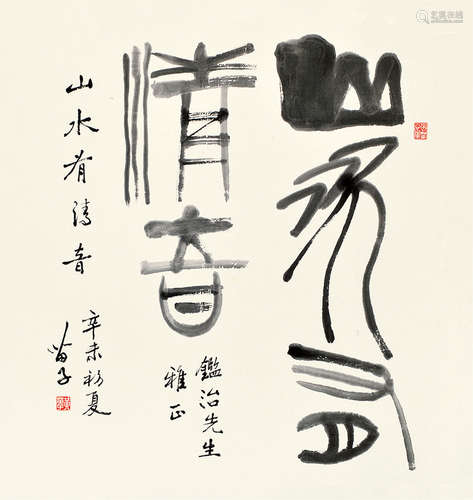 山水有
清音
山水有清音
辛未初夏
苗子
鑑治先生
雅正